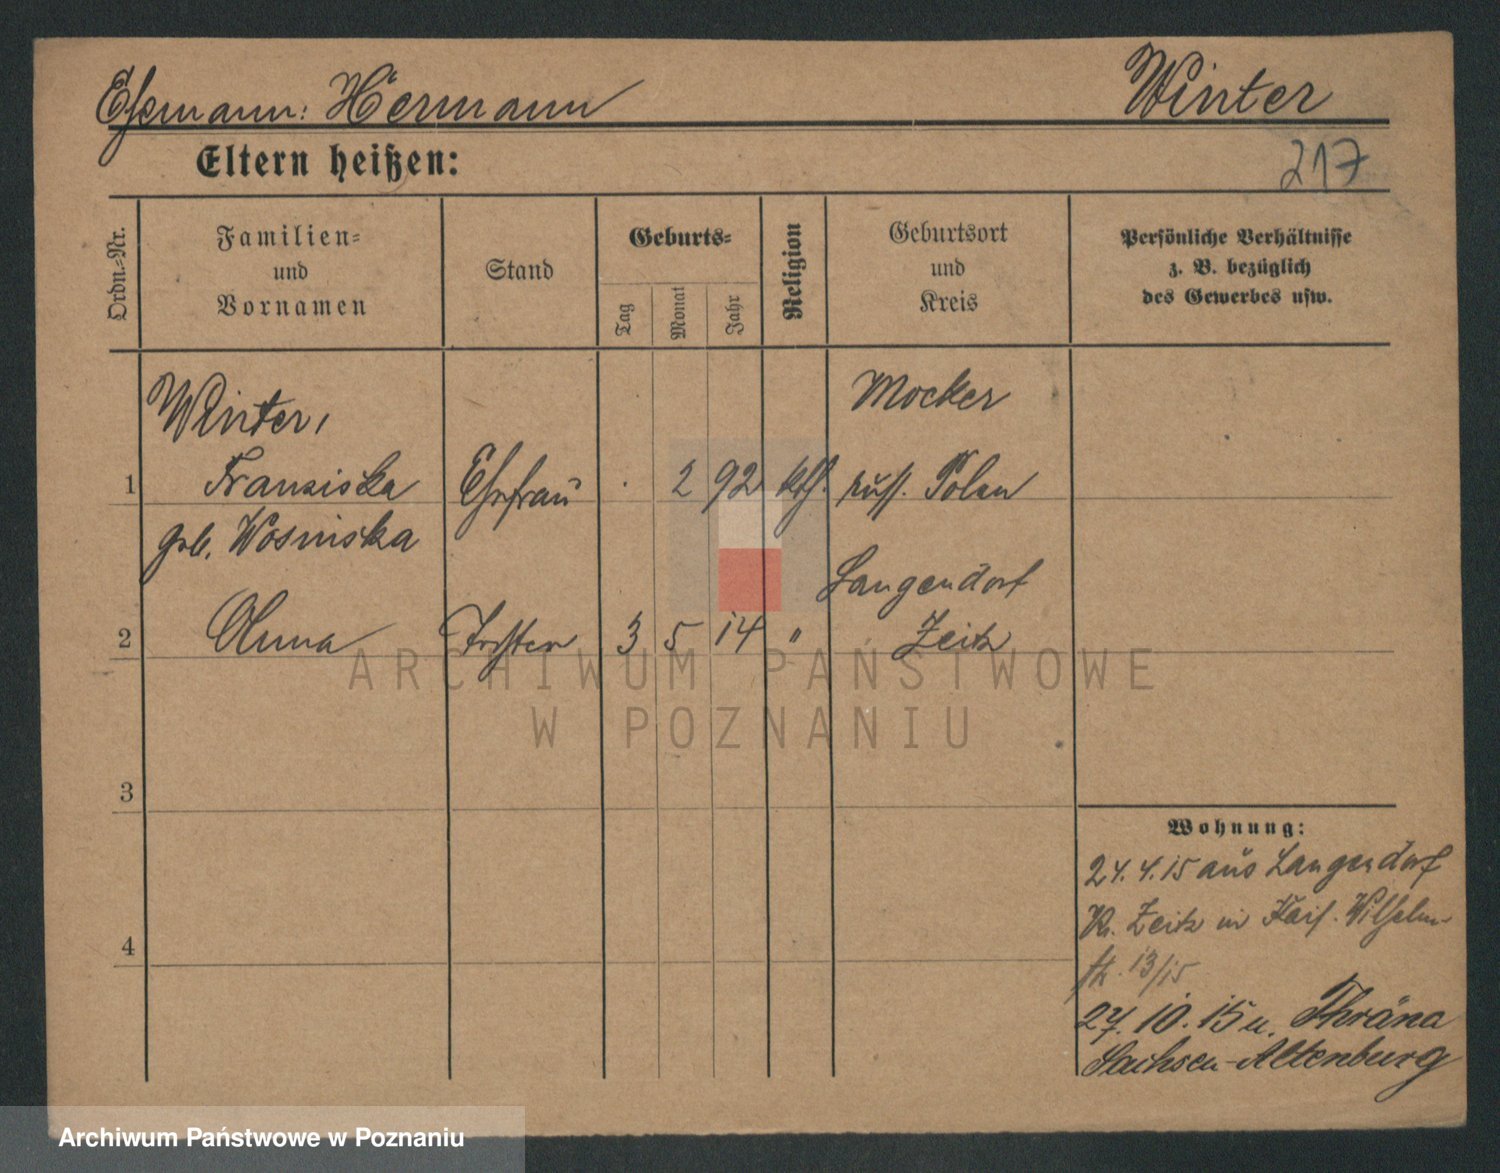 Ehemann: Hermann Winter
217
Eltern heißen:
Ordn.-Nr.
Familien-
und
Vornamen
Stand
Geburts-
Tag
Monat
Jahr
Religion
Geburtsort
und
Kreis
Persönliche Verhältnisse
z. B. bezüglich
des Gewerbes usw.
Winter, Mocker
1 Franziska Ehefrau . 2 92 kth. russ. Polen
geb. Wosniska
Langendorf
2 Anna Tochter 3 5 14 " Zeitz
ARCHIWUM PAŃSTWOWE
W POZNANIU
3
Wohnung:
24.4.15 aus Langendorf
Kr. Zeitz in Kais. Wilhelm-
4
str. 13/15
27.10.15 n. Thräna
Sachsen-Altenburg
Archiwum Państwowe w Poznaniu